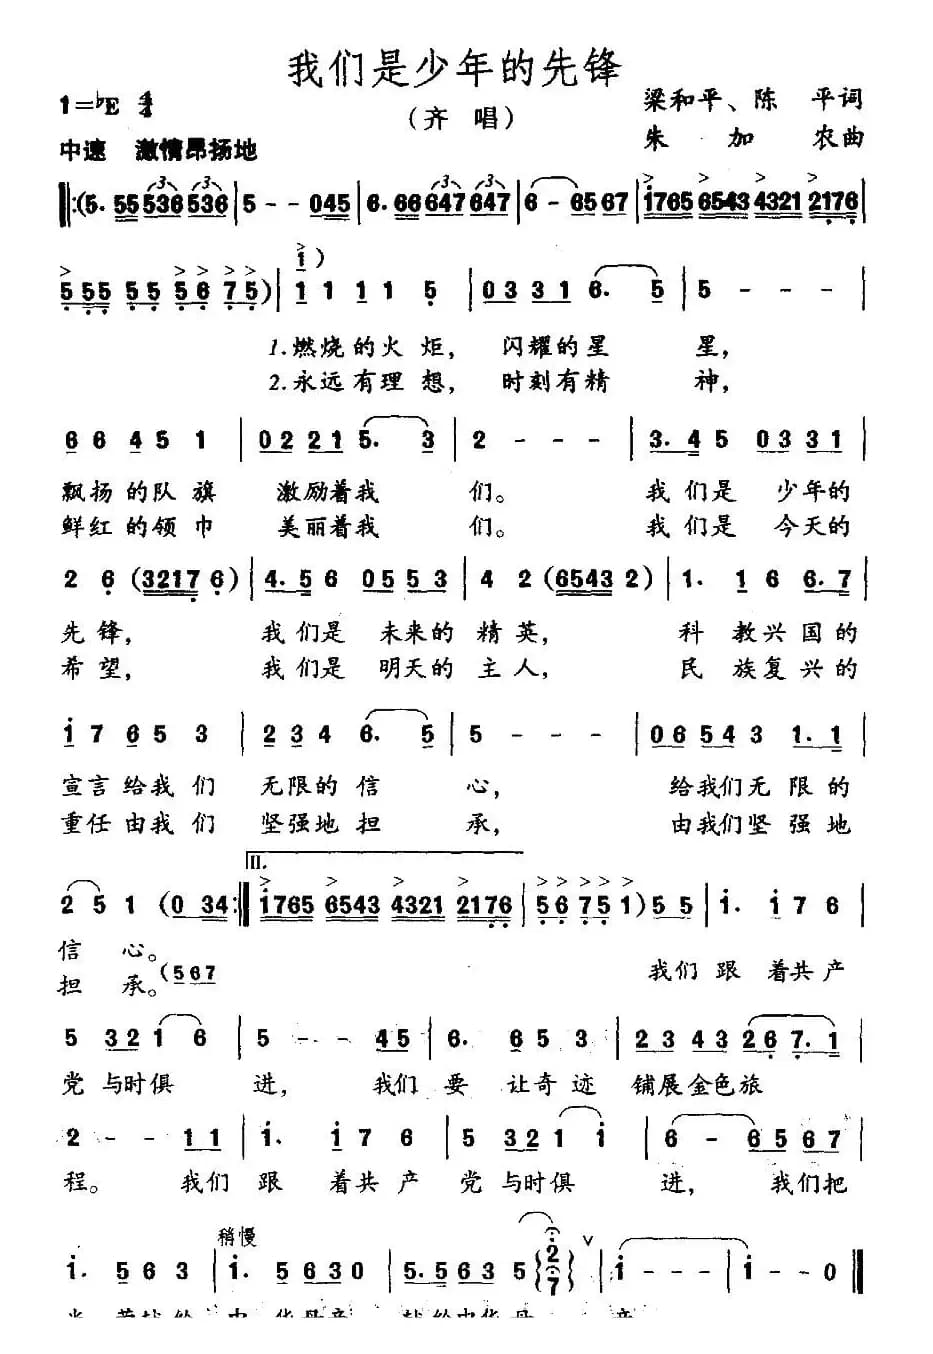 我们是少年的先锋
（齐 唱）
1=♭E 4/4
梁和平、陈 平词
朱 加 农曲
中速 激情昂扬地
‖:(5. 55 536 536 | 5 - - 045 | 6. 66 647 647 | 6 - 6567 | i765 6543 4321 2176 |
555 55 56 75) | 1 1 1 1 5 | 0331 6. 5 | 5 - - - |
1.燃烧的火 炬， 闪耀的星 星，
2.永远有理 想， 时刻有精 神，
6 6 4 5 1 | 0221 5. 3 | 2 - - - | 3. 4 5 0331 |
飘扬的队 旗 激励着我 们。 我 们是 少年的
鲜红的领 巾 美丽着我 们。 我 们是 今天的
2 6 (3217 6) | 4. 5 6 055 3 | 4 2 (6543 2) | 1. 1 6 6. 7 |
先 锋， 我 们是 未来的 精 英， 科 教兴 国 的
希 望， 我 们是 明天的 主 人， 民 族复 兴 的
i 7 6 5 3 | 2 3 4 6. 5 | 5 - - - | 06543 1. 1 |
宣言 给我 们 无限的 信 心， 给我们无 限 的
重任 由我 们 坚强地 担 承， 由我们坚 强 地
II.
2 5 1 (0 34 :‖ i765 6543 4321 2176 | 56 75 1) 55 | i. i 7 6 |
信 心。
担 承。(567
我们 跟 着共 产
5 321 6 | 5 - - 45 | 6. 6 5 3 | 23 43 26 7. 1 |
党 与时俱 进， 我们 要 让奇 迹 铺展金色旅
2 - - 11 | i. i 7 6 | 5 321 i | 6 - 6567 |
程。 我们 跟 着共 产 党 与时俱 进， 我们把
稍慢
i. 5 6 3 | i. 5630 | 5. 563 5 2/7 ∨ | i - - - | i - 0 ‖